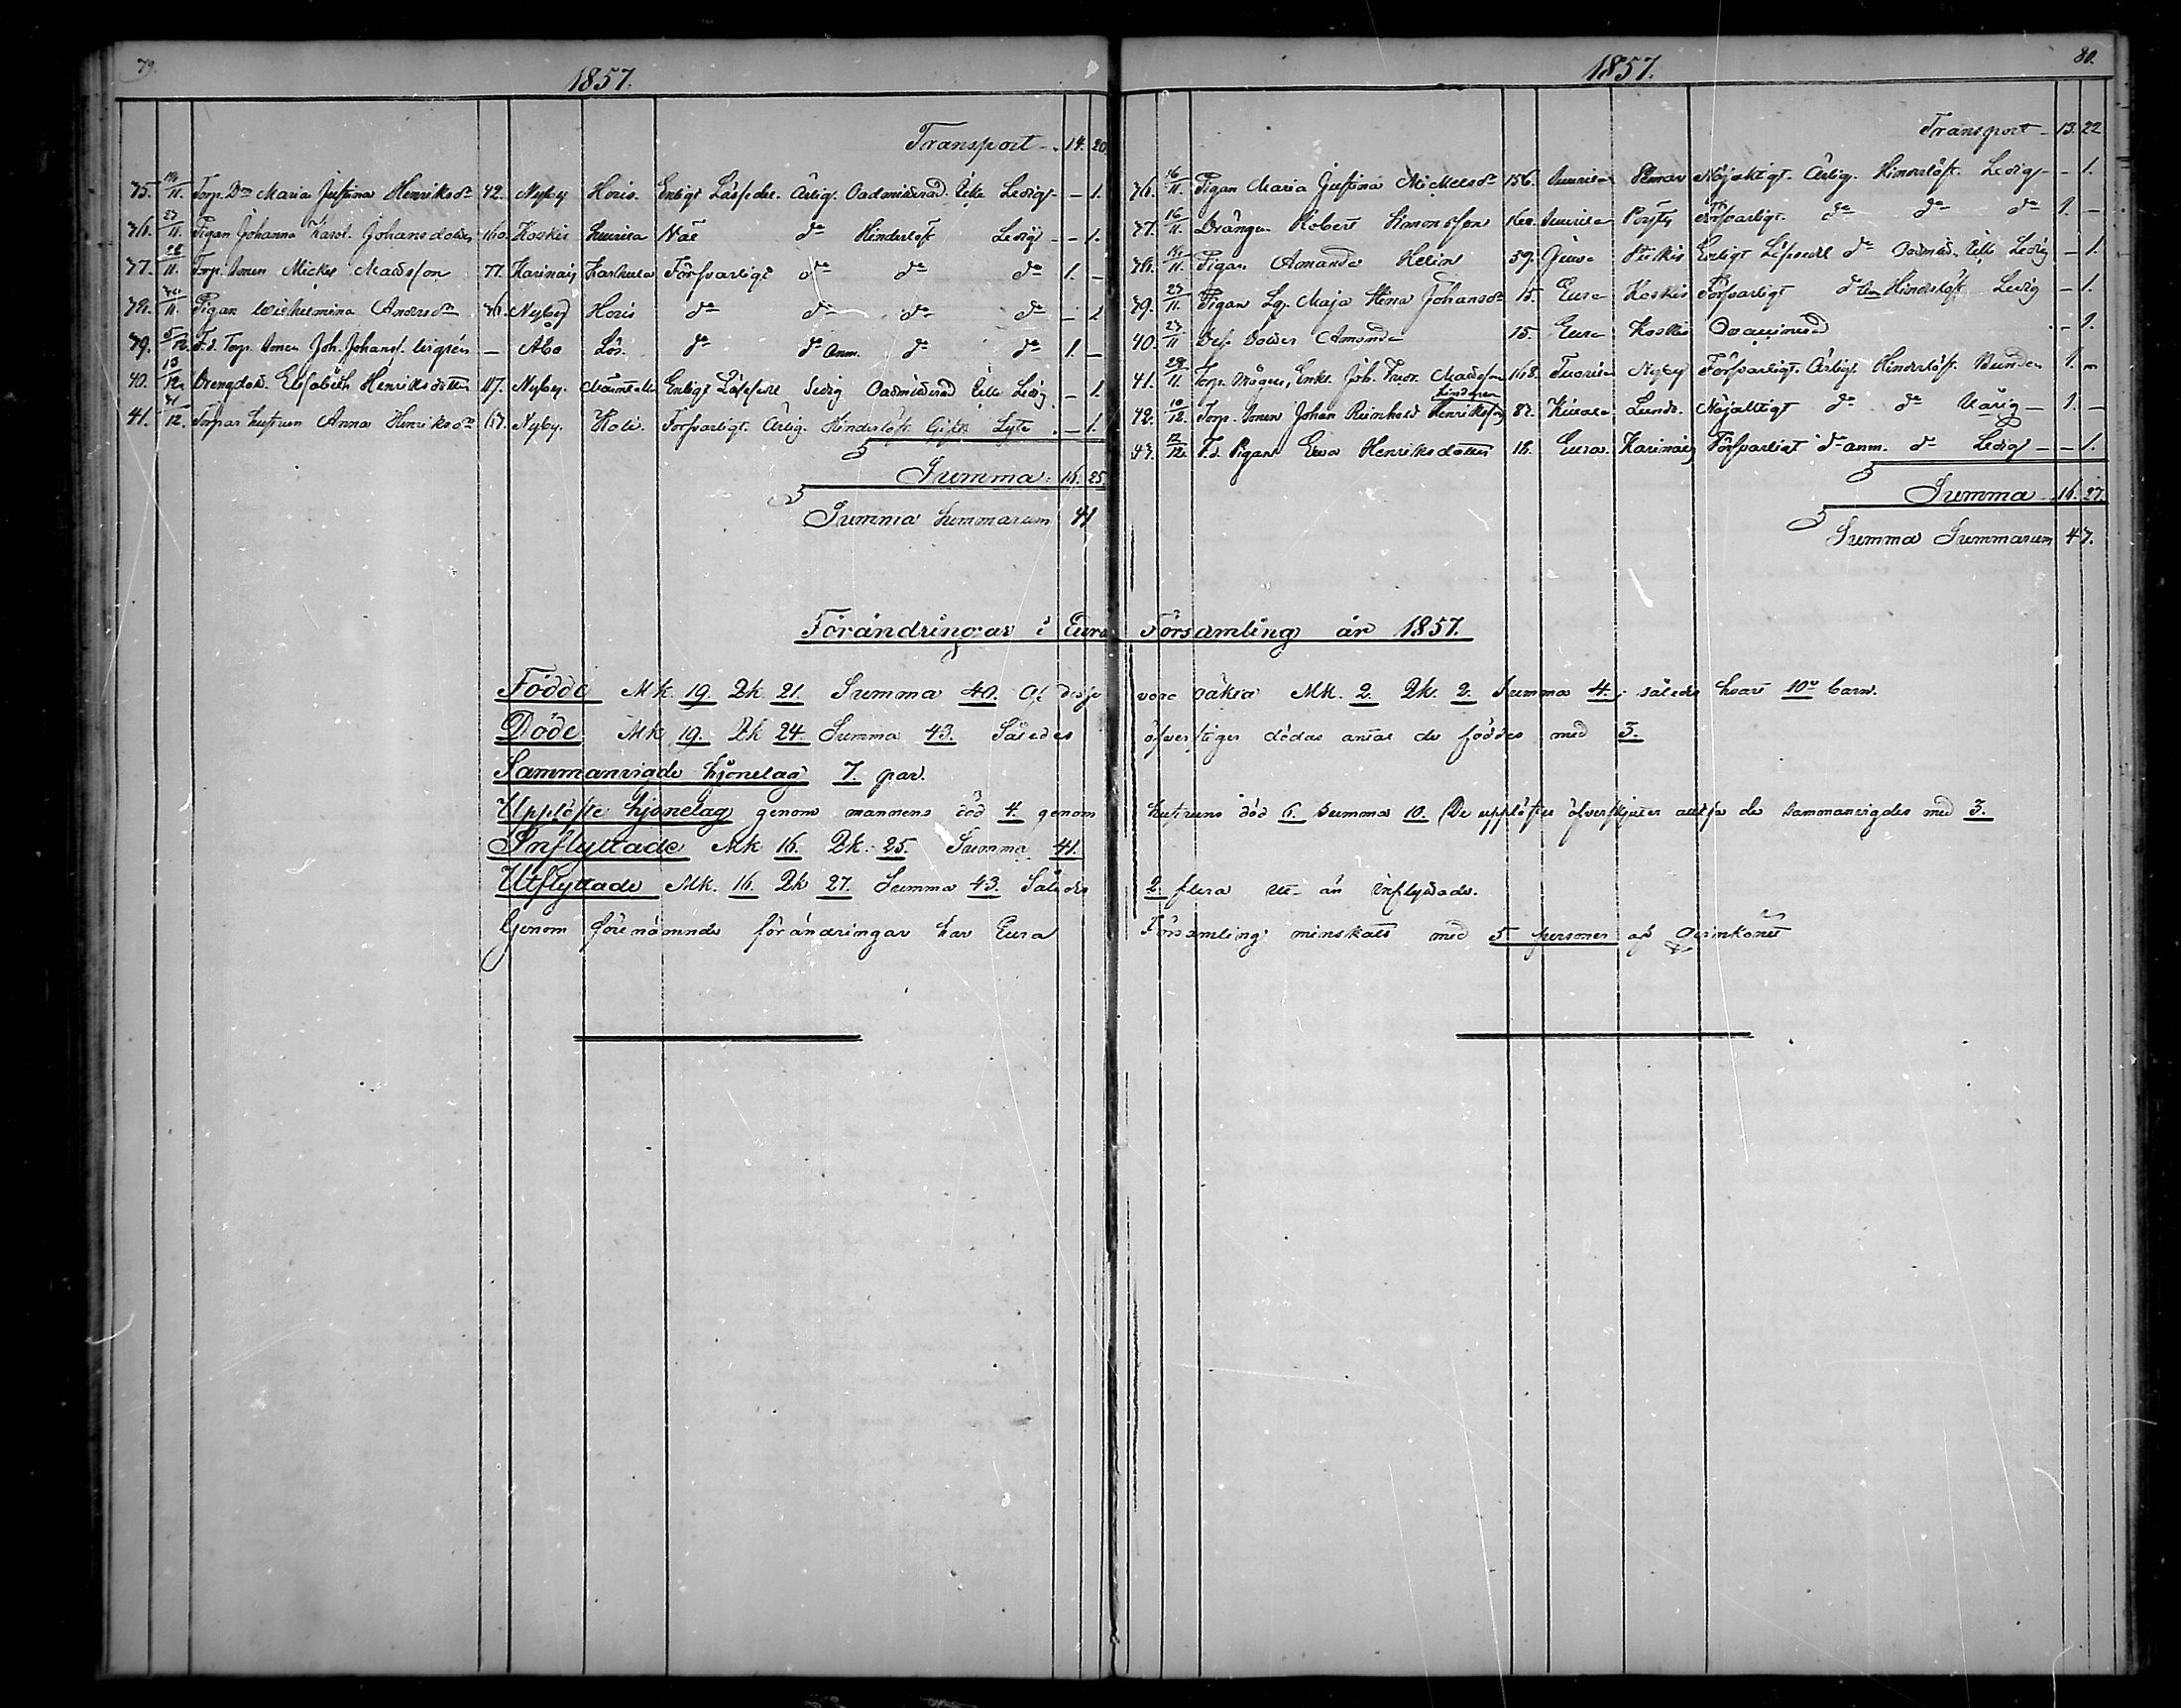 79.
1857.
Transport - 14. 20.
35. 14/11. Torp. Dr Maria Justina Henriksdr 42. Nyby Horis. Enligt Läsfedel. Ärlig. Oadmitterad. Ledig - - 1.
36. 23/11. Pigan Johanna Karol. Johansdotter 160. Koskis Suurila do Hinderslöst Ledig - - 1.
37. 28/11. Torp. Sonen Mickel Madsson 77. Karinais Försvarligt do do do 1. -
38. 11. Pigan Wilhelmina Andersdr Nyby Horis do do do do - 1
39. 5/12. F.d. Torp. Sonen Joh. Johans. - Åbo Lös. do do Anm. do do 1. -
40. 13/12. Drengdott. Elisabeth Henriksdotter 117. Nyby. Enligt Läsfedel Sedig Oadmitterad Ledig - 1.
41. 12. Torpar hustrun Anna Henriksdr 157. Nyby. Försvarligt. Ärlig. Hinderslöst Gift - 1.
Summa. 16. 25.
Summa Summarum 41
80.
1857.
Transport - 13. 22
36. 16/11. Pigan Maria Justina Mickelsdr 156. Suurila Pemar Nöjaktigt. Ärlig. Hinderslöst. Ledig - - 1.
37. 16/11. Drängen Robert Simonsson 160. Suurila Pöytis Försvarligt. do do do 1. -
38. 11. Pigan Amanda Helin 59. Enligt Läsfedel do Oadmitt. Ledig - 1.
39. 23/11. Pigan Maja Stina Johansdr 15. Eura Koskis Försvarligt do Hinderslöst Ledig - 1.
40. 23/11 Des dotter Amanda 15. Eura Koskis Ovaccinerad - 1.
41. 11. Torp. Enkl. Joh. Madsson 168. Nyby Försvarligt. Ärligt Hinderslöst. 1.
42. 10/12. Torp. Sonen Johan Reinhold Henriksson 82. Nöjaktigt do do Uärig - 1. -
43. 12/12. F.d. Pigan Eva Henriksdotter 18. Eura. Karinais Försvarligt do anm. do Ledig - - 1.
Summa 16. 27.
Summa Summarum 43.
Förändringar i Eura Församling år 1857.
Födde Mk. 19. Qk. 21. Summa 40. Af desse voro oäkta Mk. 2. Qk. 2. Summa 4; således hvart 10de barn.
Döde Mk 19. Qk 24. Summa 43. Således öfverstiger dödas antal de föddes med 3.
Sammanvigde hjonelag 7. par.
Upplöste hjonelag genom mannens död 4. genom hustruns död 6. Summa 10. De upplöstes öfverskjuter de sammanvigdes med 3.
Inflyttade Mk 16. Qk. 25. Summa 41.
Utflyttade Mk. 16. Qk 27. Summa 43. Således 2. flera ut- än inflyttade.
Genom förenämnde förändringar har Eura Församling minskats med 5 personer af Qvinkönet